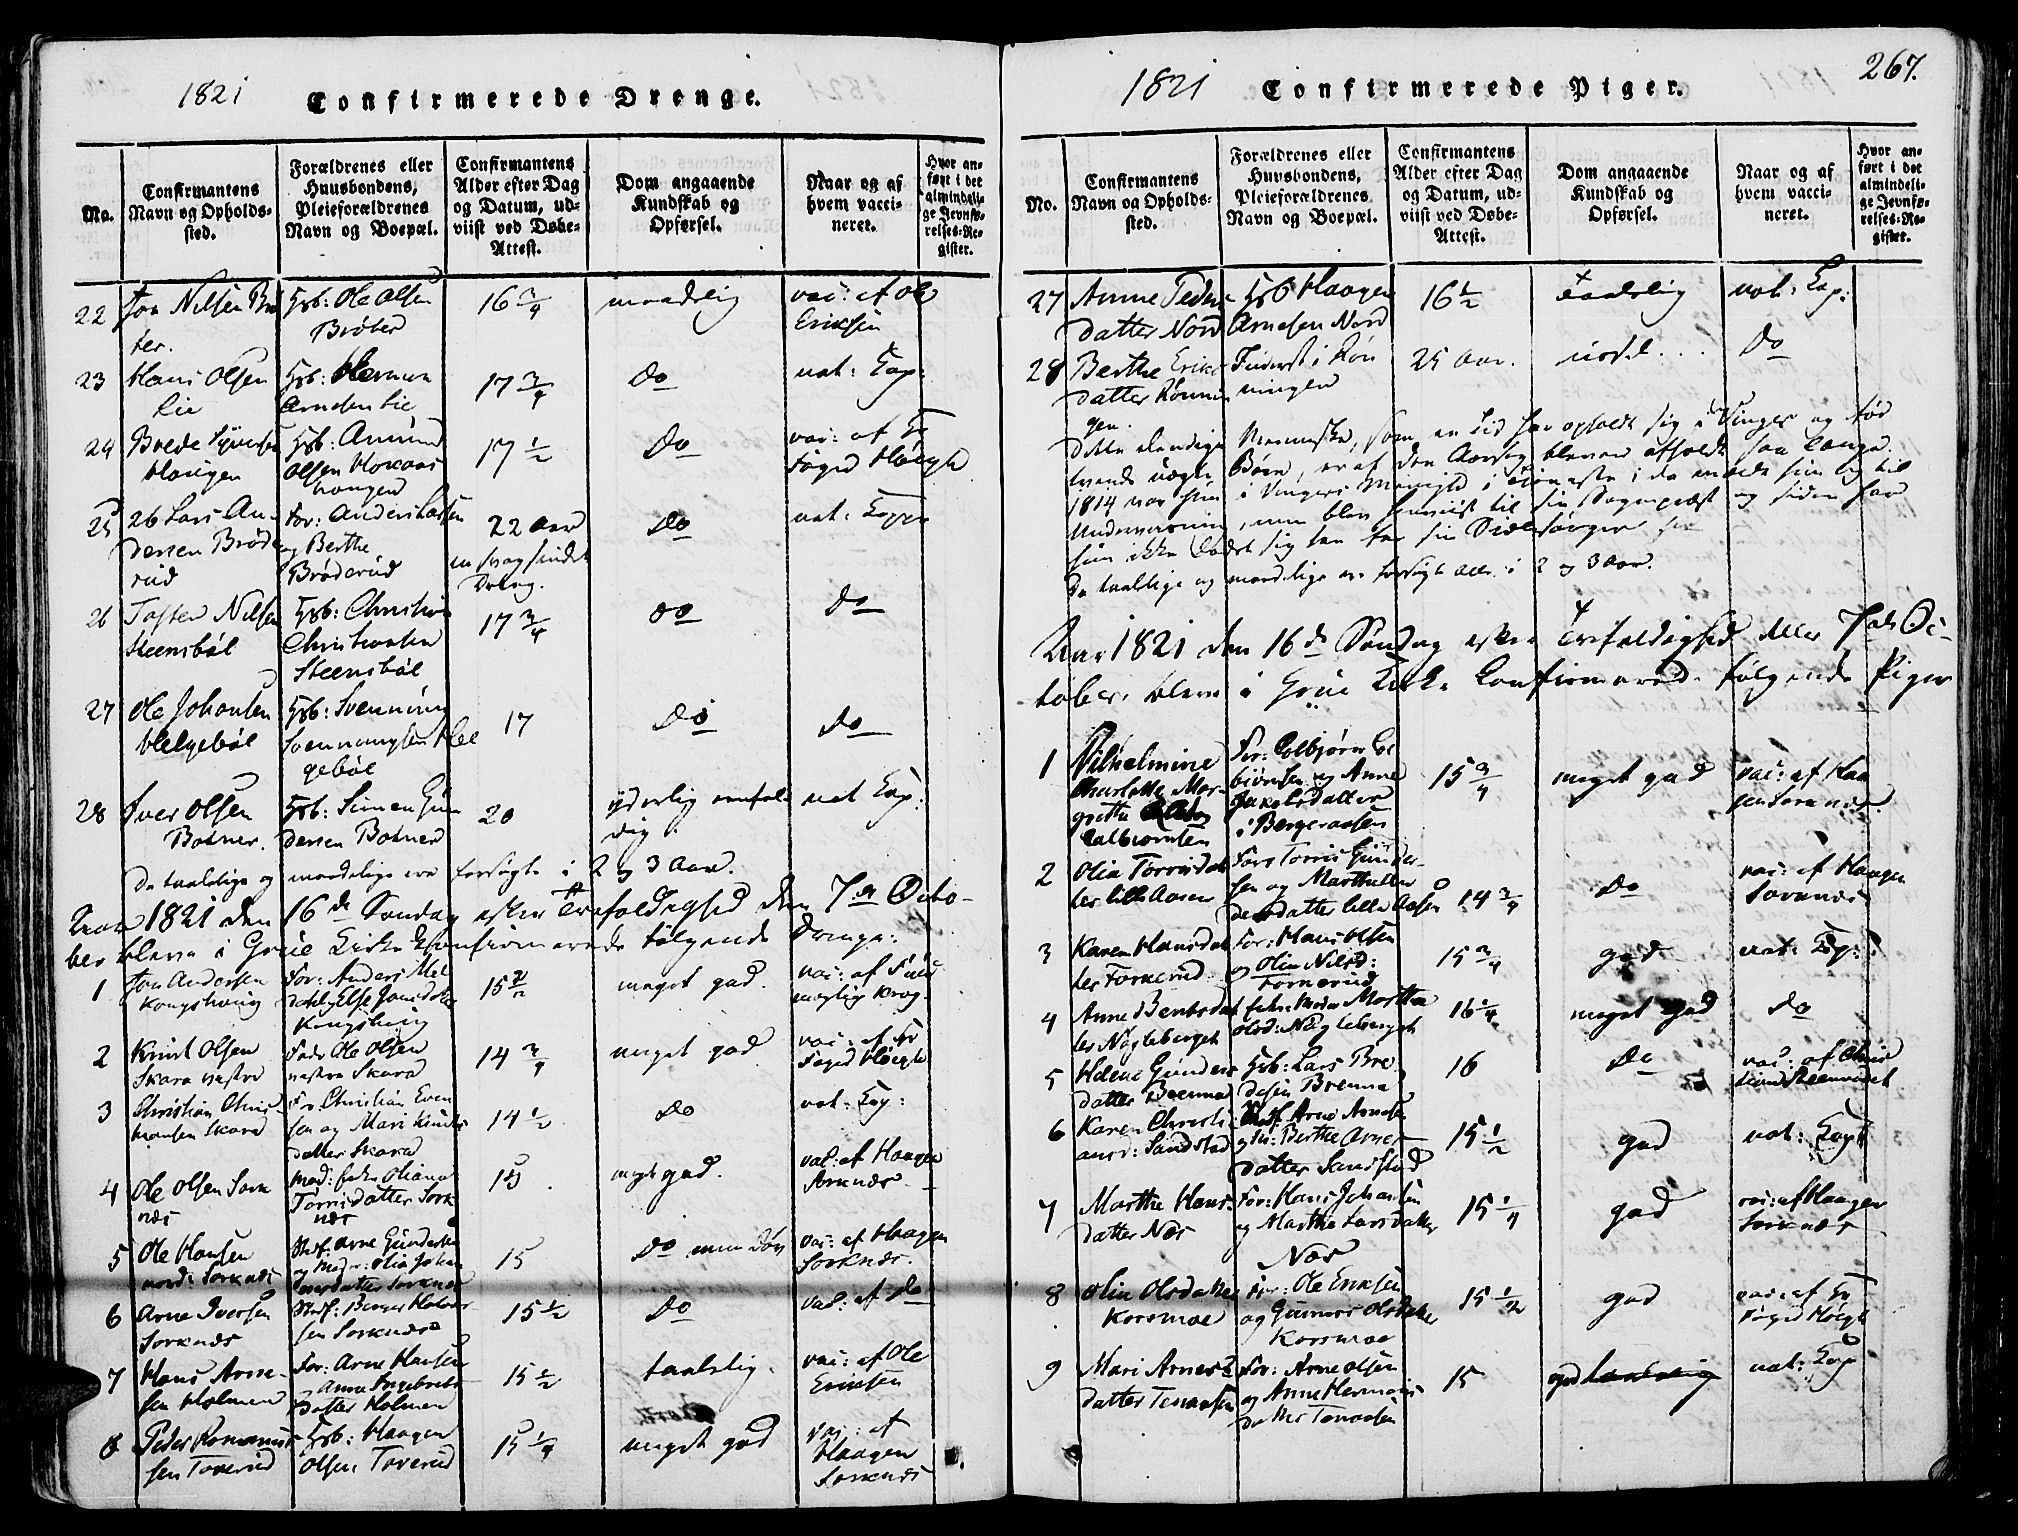 1821 Confirmerede Drenge.
No.
Confirmantens
Navn og Opholds-
sted.
Forældrenes eller
Huusbondens,
Pleieforældrenes
Navn og Boepæl.
Confirmantens
Alder efter Dag
og Datum, ud-
viist ved Døbe-
Attest.
Dom angaaende
Kundskab og
Opførsel.
Naar og af
hvem vacci-
neret.
Hvor an-
ført i det
almindeli-
ge Jevnfø-
relses-Re-
gister.
22 Jon Nilsen Brö
ter.
Hsb: Ole Olsen
Bröter
16 3/4
maadelig
vac: af Ole
Eriksen
23 Hans Olsen
Lie
Hsb: Herman
Arnesen Lie
17 3/4
do
nat: Kop:
24 Brede Syversen
Haugen
Hsb: Amund
Olsen
17 1/2
do
vac: af Hr
Foged Høegh
25 26 Lars An-
dersen Bröde
rud
For: Anders Larsen
og Berthe
Bröderud
22 Aar
do
nat: Kopp
26 Tosten Nilsen
Steensböl
Hsb: Christian
Christiansen
Steensböl
17 3/4
do
do
27 Ole Johansen
Helgeböl
Hsb: Svennung
Svennungsen Hel
geböl
17
do
do
28 Iver Olsen
Botner.
Hsb: Simen Gun
dersen Botner
20
yderlig eenfol-
dig.
nat Kop:
De taalelige og maadelige ere forsøgte i 2 og 3 Aar.
Aar 1821 den 16de Søndag efter Trefoldighed den 7de Octo-
ber bleve i Grue Kirke Confirmerede følgende Drenge:
1 Jon Andersen
Kongshoug
For: Anders
Else
Kongshoug
15 1/2
meget god.
vac: af
Krog.
2 Knut Olsen
Skara vestre
Fader Ole Olsen
vestre Skara
14 3/4
meget god
vac: af Hr
Foged Høegh
3 Christian Chris-
tiansen Skara
For: Christian Even
sen og Mari Knuds
datter Skara
14 1/2
do
nat: Kop:
4 Ole Olsen Sork
næs
Mod: Oliana
Torrisdatter Sork
næs
15
meget god.
vac: af Haagen
Sorknæs
5 Ole Hansen
nord: Sorknæs
Stedf: Arne Gundersen
og Moder: Olia Johan
nesdatter Sorknæs
15
do men døv
vac: af Haagen
Sorknæs.
6 Arne Iversen
Sorknæs
Stedf: Berger Halvor
sen Sorknæs
15 1/2
do
vac: af do
7 Hans Arne-
sen Holmen
For: Arne Hansen
og Anne Ingebrets
datter Holmen
15 1/2
taalelig.
vac: af Ole
Eriksen
8 Peder Romanus
sen Toverud
Hsb: Haagen
Olsen Toverud
15 1/4
meget god
vac: af
Haagen
Sorknæs
1821 Confirmerede Piger. 267.
No.
Confirmantens
Navn og Opholds-
sted.
Forældrenes eller
Huusbondens,
Pleieforældrenes
Navn og Boepæl.
Confirmantens
Alder efter Dag
og Datum, ud-
viist ved Døbe-
Attest.
Dom angaaende
Kundskab og
Opførsel.
Naar og af
hvem vacci-
neret.
Hvor an-
ført i det
almindeli-
ge Jevnfø-
relses-Re-
gister.
27 Anne Peders
datter Nord
Hsb Haagen
Arnesen Nord
16 1/2
taalelig
nat: Kop:
28 Berthe Eriks
datter Rönnin
gen.
Inderst i Rön
ningen
25 Aar.
usel...
do
Dette elendige Menneske, som en Tid har opholdt sig i Vinger og fød
tvende uægte Børn, er af den Aarsag bleven afholdt saa længe.
1814 var hun i Vingers Menighed i Tieneste, i
Underviisning, men blev henviist til sin Sogneprest og siden har
hun ikke ladet sig see for sin Sielesørger før
De taalelige og maadelige ere forsøgte alle i 2 og 3 Aar.
Aar 1821 den 16de Søndag efter Trefoldighed eller 7de Oc-
tober, bleve i Grue Kirke Confirmerede følgende Piger
1 Vilhelmine
Charlotte Mar-
grethe
Colbiørnsen
For: Colbjørn Col
biørnsen og Anne
Jakobsdatter
i Bergeraasen
15 3/4
meget god
vac: af Haa
gen Sorknæs
2 Olia Torrisdat
ter lille Aasen
For: Torris Gunder-
sen og Marthe
datter lille Aasen
14 3/4
do
vac: af Haagen
Sorknæs
3 Karen Hansdat
ter Fornerud
For: Hans Olsen
og Olia Nilsd:
Fornerud
15 3/4
god
nat: Kop:
4 Anne Berntsdat
ter Nögleberget
Moder Marthe
Olsd: Nögleberget
16 1/4
meget god
do
5 Helene Gunders
datter Brenna
Hsb: Lars Bre
desen Brenna
16
do
vac: af Chris
tian
6 Karen Christi
ansd: Sandstad
Stedf. Arne Arnesen
og M: Berthe Arnes
datter Sandstad
15 1/2
god
nat: Kop
7 Marthe Hans-
datter Næs
For: Hans Johansen
og Marthe Larsdatter
Næs
15 1/4
god
vac: af Haagen
Sorknæs
8 Olia Olsdatter
Korsmoe
For: Ole Eriksen
og Gunnor Olsdatter
Korsmoe
15 1/2
god
vac: af Hr
Foged Høegh
9 Mari Arnes
datter Tenaasen
For: Arne Olsen
og Anne Hermans
datter Tenaasen
15
god taalelig
nat: Kop